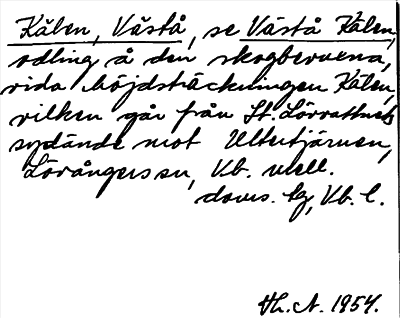 Kälen, Västå, se Västå Kälen,
odling å den skogbevuxna,
vida höjdsträckningen Kälen,
vilken går från St. Lövvattnets
sydände mot Uttertjärnen,
Lövångers sn, Vb. mell.
doms. bg, Vb. l.
Th. A. 1954.